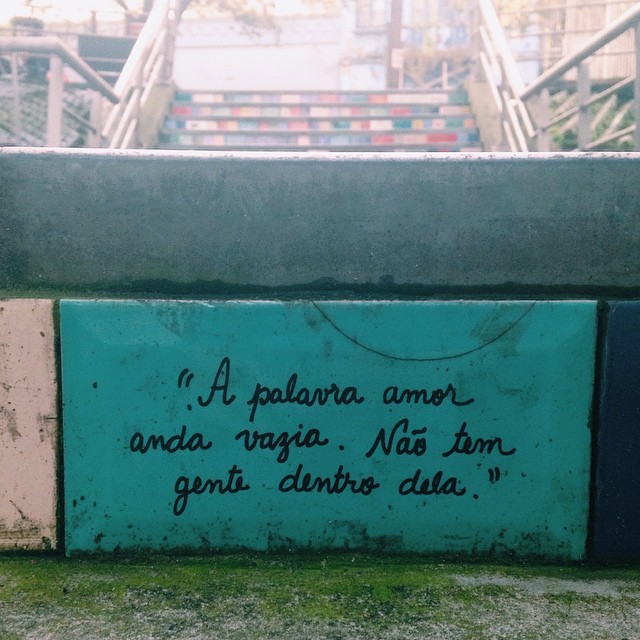 "A palavra amor
anda vazia. Não tem
gente dentro dela."